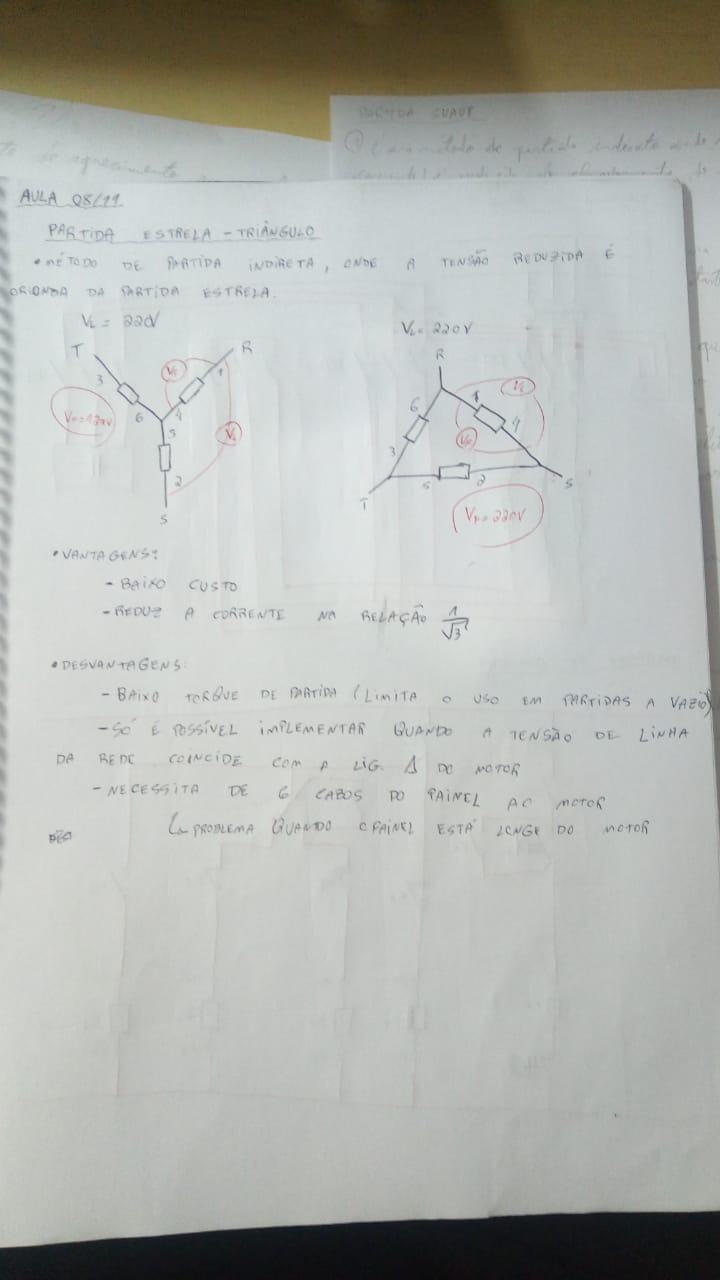 PARTIDA SUAVE
de aquecimento
método de partida indireta onde
AULA 08/11
PARTIDA ESTRELA - TRIÂNGULO
• MÉTODO DE PARTIDA INDIRETA, ONDE A TENSÃO REDUZIDA É
ORIONDA DA PARTIDA ESTRELA.
VL = 220V
VL = 220V
T
R
3
6
Vf
4
1
5
2
S
VL
R
6
3
1
4
VL
T
5
2
S
VF = 220V
• VANTAGENS:
- BAIXO CUSTO
- REDUZ A CORRENTE NA RELAÇÃO 1/√3
• DESVANTAGENS:
- BAIXO TORQUE DE PARTIDA (LIMITA O USO EM PARTIDAS A VAZIO)
- SÓ É POSSÍVEL IMPLEMENTAR QUANDO A TENSÃO DE LINHA
DA REDE COINCIDE COM A LIG. Δ DO MOTOR
- NECESSITA DE 6 CABOS DO PAINEL AO MOTOR
↳ PROBLEMA QUANDO O PAINEL ESTÁ LONGE DO MOTOR